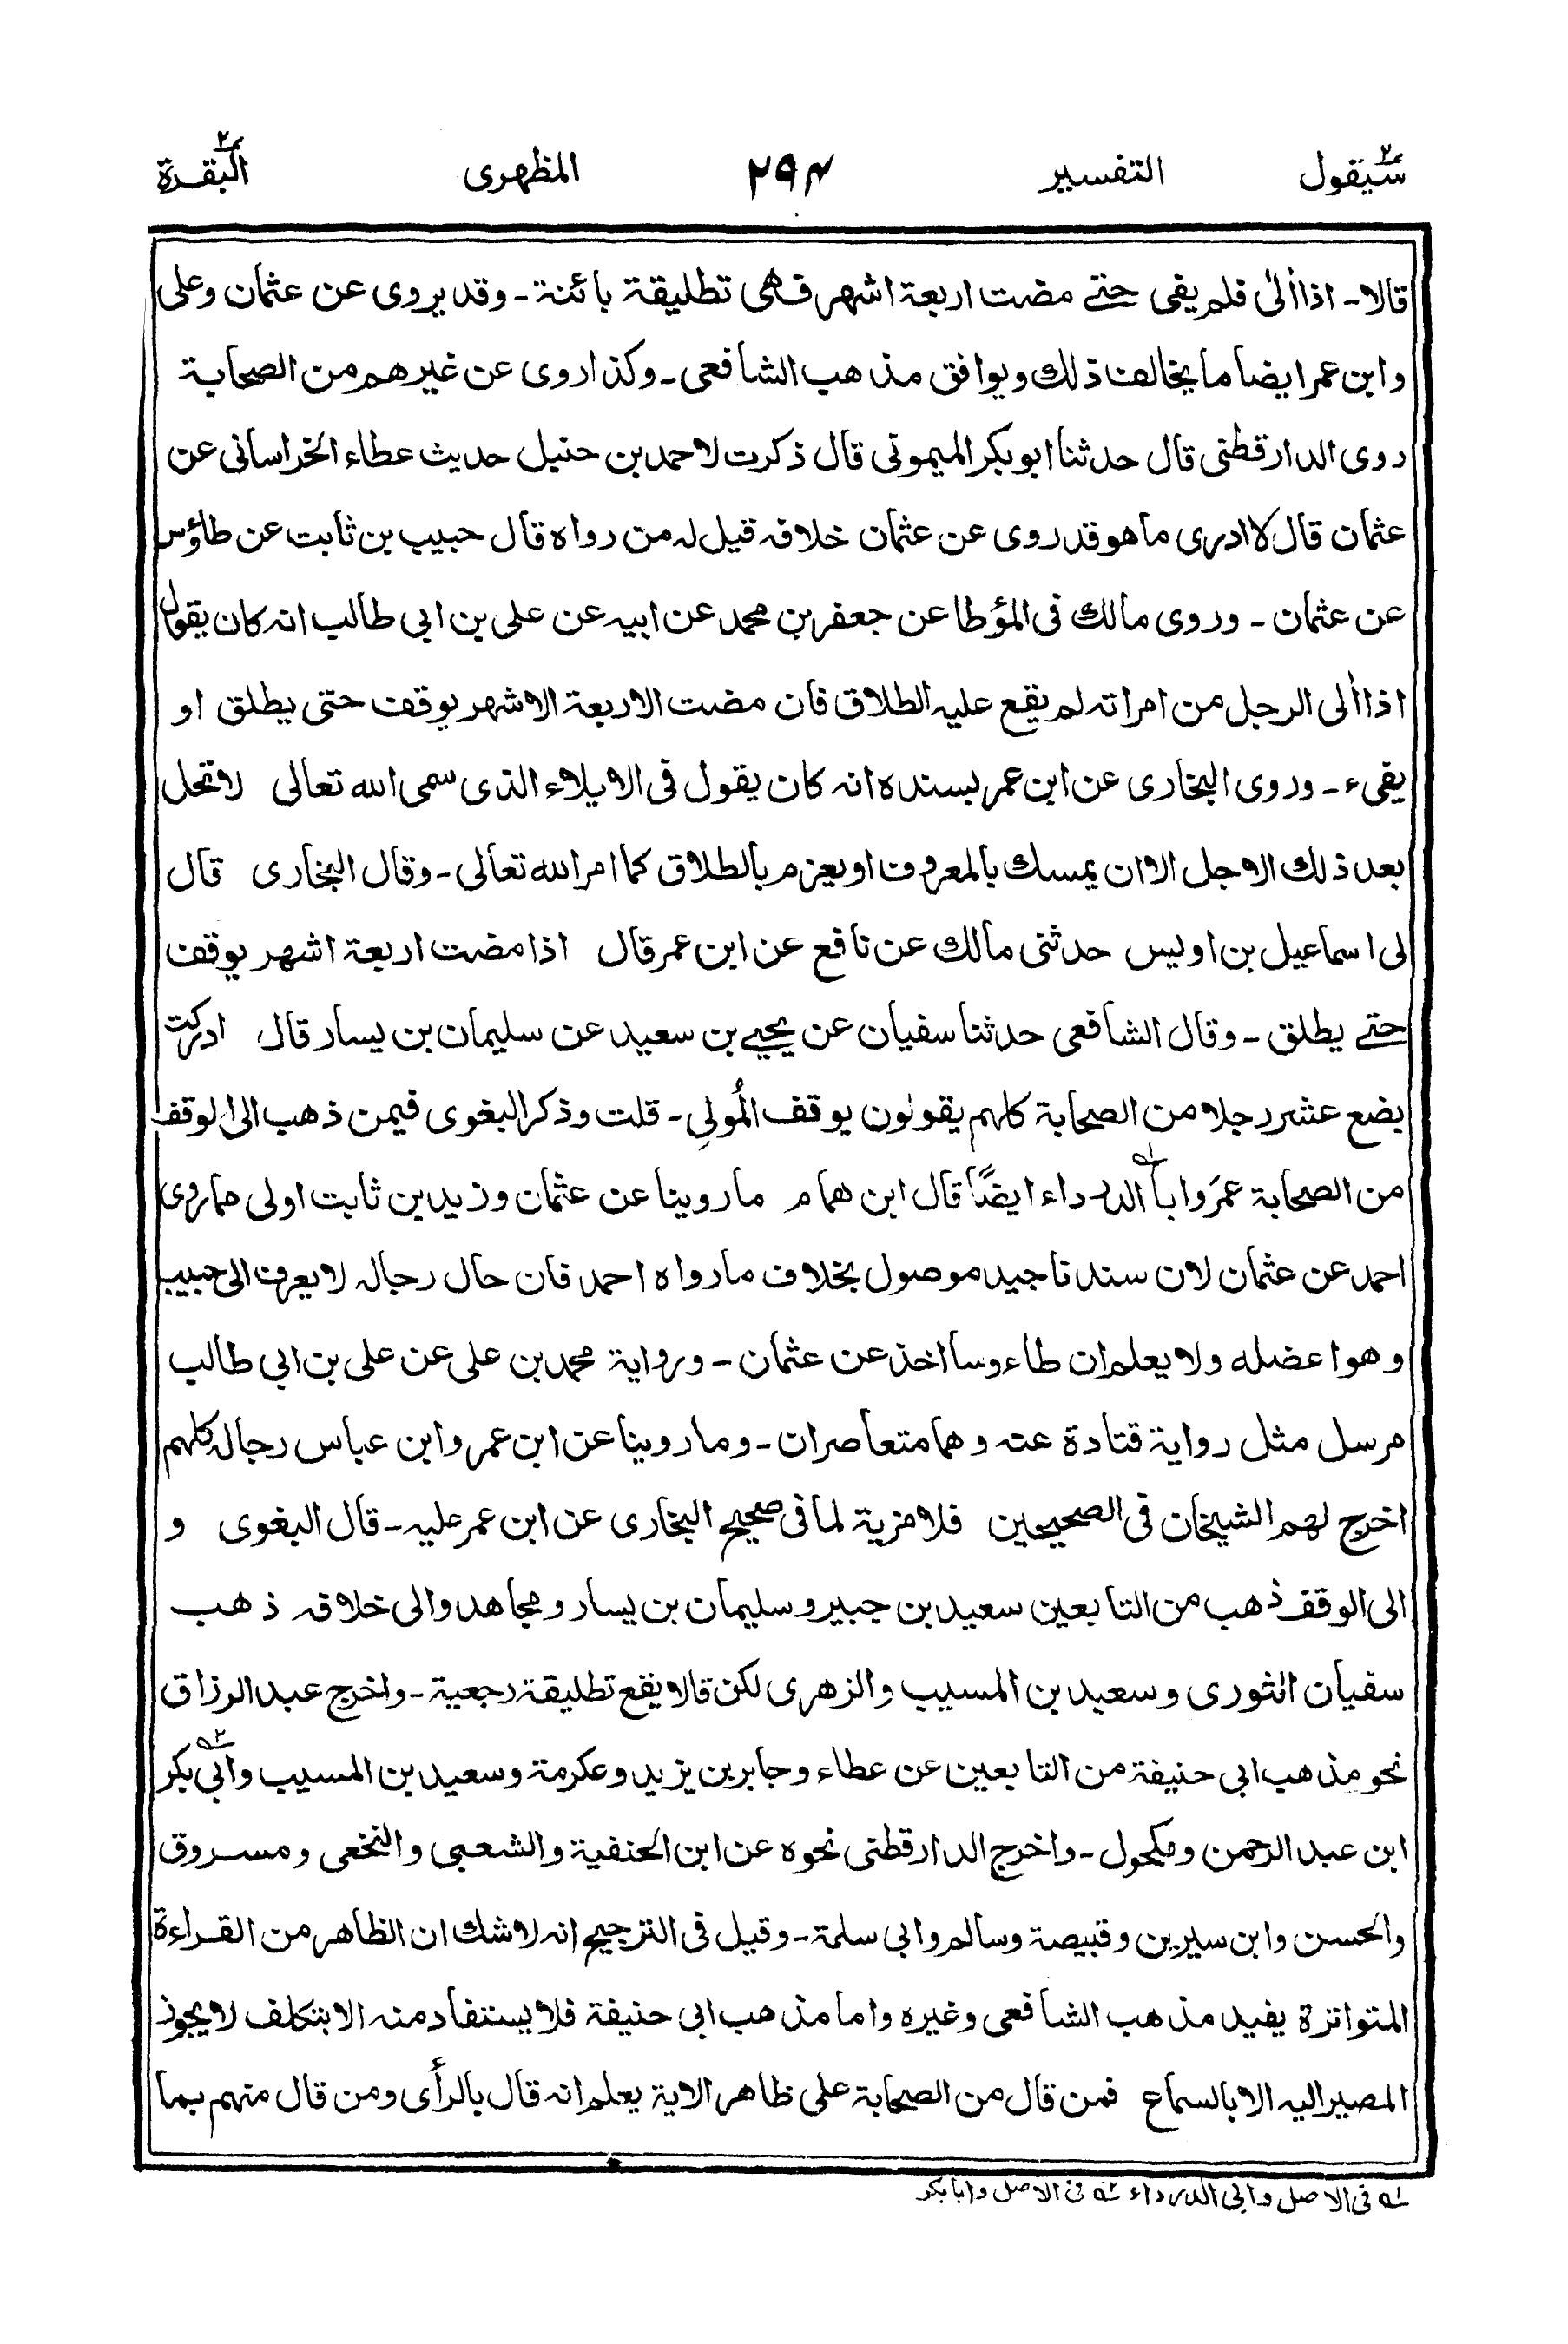 سيقول ٢ التفسير ٢٩٤ المظهرى البقرة ٢
قالا۔ اذا ألىٰ فلم يفى حتے مضت اربعة اشهر فهى تطليقة بائنة۔ وقد يروى عن عثمان وعلى
وابن عمر ايضا ما يخالف ذلك ويوافق مذهب الشافعى۔ وكذا روى عن غيرهم من الصحابة
روى الدارقطنى قال حدثنا ابو بكر الميمونى قال ذكرت لاحمد بن حنبل حديث عطاء الخراسانى عن
عثمان قال لا ادرى ما هو قد روى عن عثمان خلافه قيل له من رواه قال حبيب بن ثابت عن طاؤس
عن عثمان۔ وروى مالك فى المؤطا عن جعفر بن محمد عن ابيه عن على بن ابى طالب انه كان يقول
اذا ألى الرجل من امراته لم يقع عليه الطلاق فان مضت الاربعة الاشهر يوقف حتى يطلق او
يفىء۔ وروى البخارى عن ابن عمر بسنده انه كان يقول فى الايلاء الذى سمى الله تعالى لا تحل
بعد ذلك الاجل الا ان يمسك بالمعروف او يعزم بالطلاق كما امر الله تعالى۔ وقال البخارى قال
لى اسماعيل بن اويس حدثنى مالك عن نافع عن ابن عمر قال اذا مضت اربعة اشهر يوقف
حتے يطلق۔ وقال الشافعى حدثنا سفيان عن يحيے بن سعيد عن سليمان بن يسار قال ادركت
بضع عشر رجلا من الصحابة كلهم يقولون يوقف المُولِى۔ قلت وذكر البغوى فيمن ذهب الى الوقف
من الصحابة عمرَ وابا الدرداء ؎۱ ايضًا قال ابن همام ما روينا عن عثمان وزيد بن ثابت اولى مما روى
احمد عن عثمان لان سندنا جيد موصول بخلاف ما رواه احمد فان حال رجاله لا يعرف الى حبيب
وهو اعضله ولا يعلم ان طاءوسا اخذ عن عثمان۔ ورواية محمد بن على عن على بن ابى طالب
مرسل مثل رواية قتادة عنه وهما متعاصران۔ وما روينا عن ابن عمر وابن عباس رجاله كلهم
اخرج لهم الشيخان فى الصحيحين فلا مزية لما فى صحيح البخارى عن ابن عمر عليه۔ قال البغوى و
الى الوقف ذهب من التابعين سعيد بن جبير وسليمان بن يسار ومجاهد والى خلافه ذهب
سفيان الثورى وسعيد بن المسيب والزهرى لكن قالا يقع تطليقة رجعية۔ واخرج عبد الرزاق
نحو مذهب ابى حنيفة من التابعين عن عطاء وجابر بن يزيد وعكرمة وسعيد بن المسيب وابى ؎۲ بكر
ابن عبد الرحمن ومكحول۔ واخرج الدارقطنى نحوه عن ابن الحنفية والشعبى والنخعى ومسروق
والحسن وابن سيرين وقبيصة وسالم وابى سلمة۔ وقيل فى الترجيح انه لا شك ان الظاهر من القراءة
المتواترة يفيد مذهب الشافعى وغيره واما مذهب ابى حنيفة فلا يستفاد منه الا بتكلف لا يجوز
المصير اليه الا بالسماع فمن قال من الصحابة على ظاهر الاية يعلم انه قال بالرأى ومن قال منهم بما
؎۱ فى الاصل وابى الدرداء ؎۲ فى الاصل وابا بكر